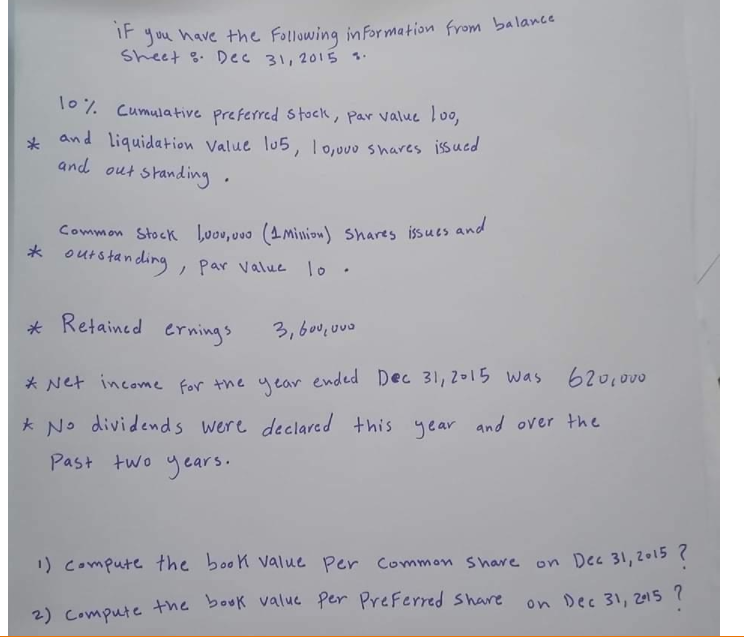 if you have the Following information from balance
Sheet :. Dec 31, 2015 :.
10% Cumulative preferred stock, par value 100,
* and liquidation value 105, 10,000 shares issued
and outstanding.
Common Stock 1,000,000 (1 Million) Shares issues and
* outstanding, par value 10.
* Retained ernings 3,600,000
* Net income for the year ended Dec 31, 2015 was 620,000
* No dividends were declared this year and over the
Past two years.
1) Compute the book value per common share on Dec 31, 2015 ?
2) Compute the book value per Preferred share on Dec 31, 2015 ?